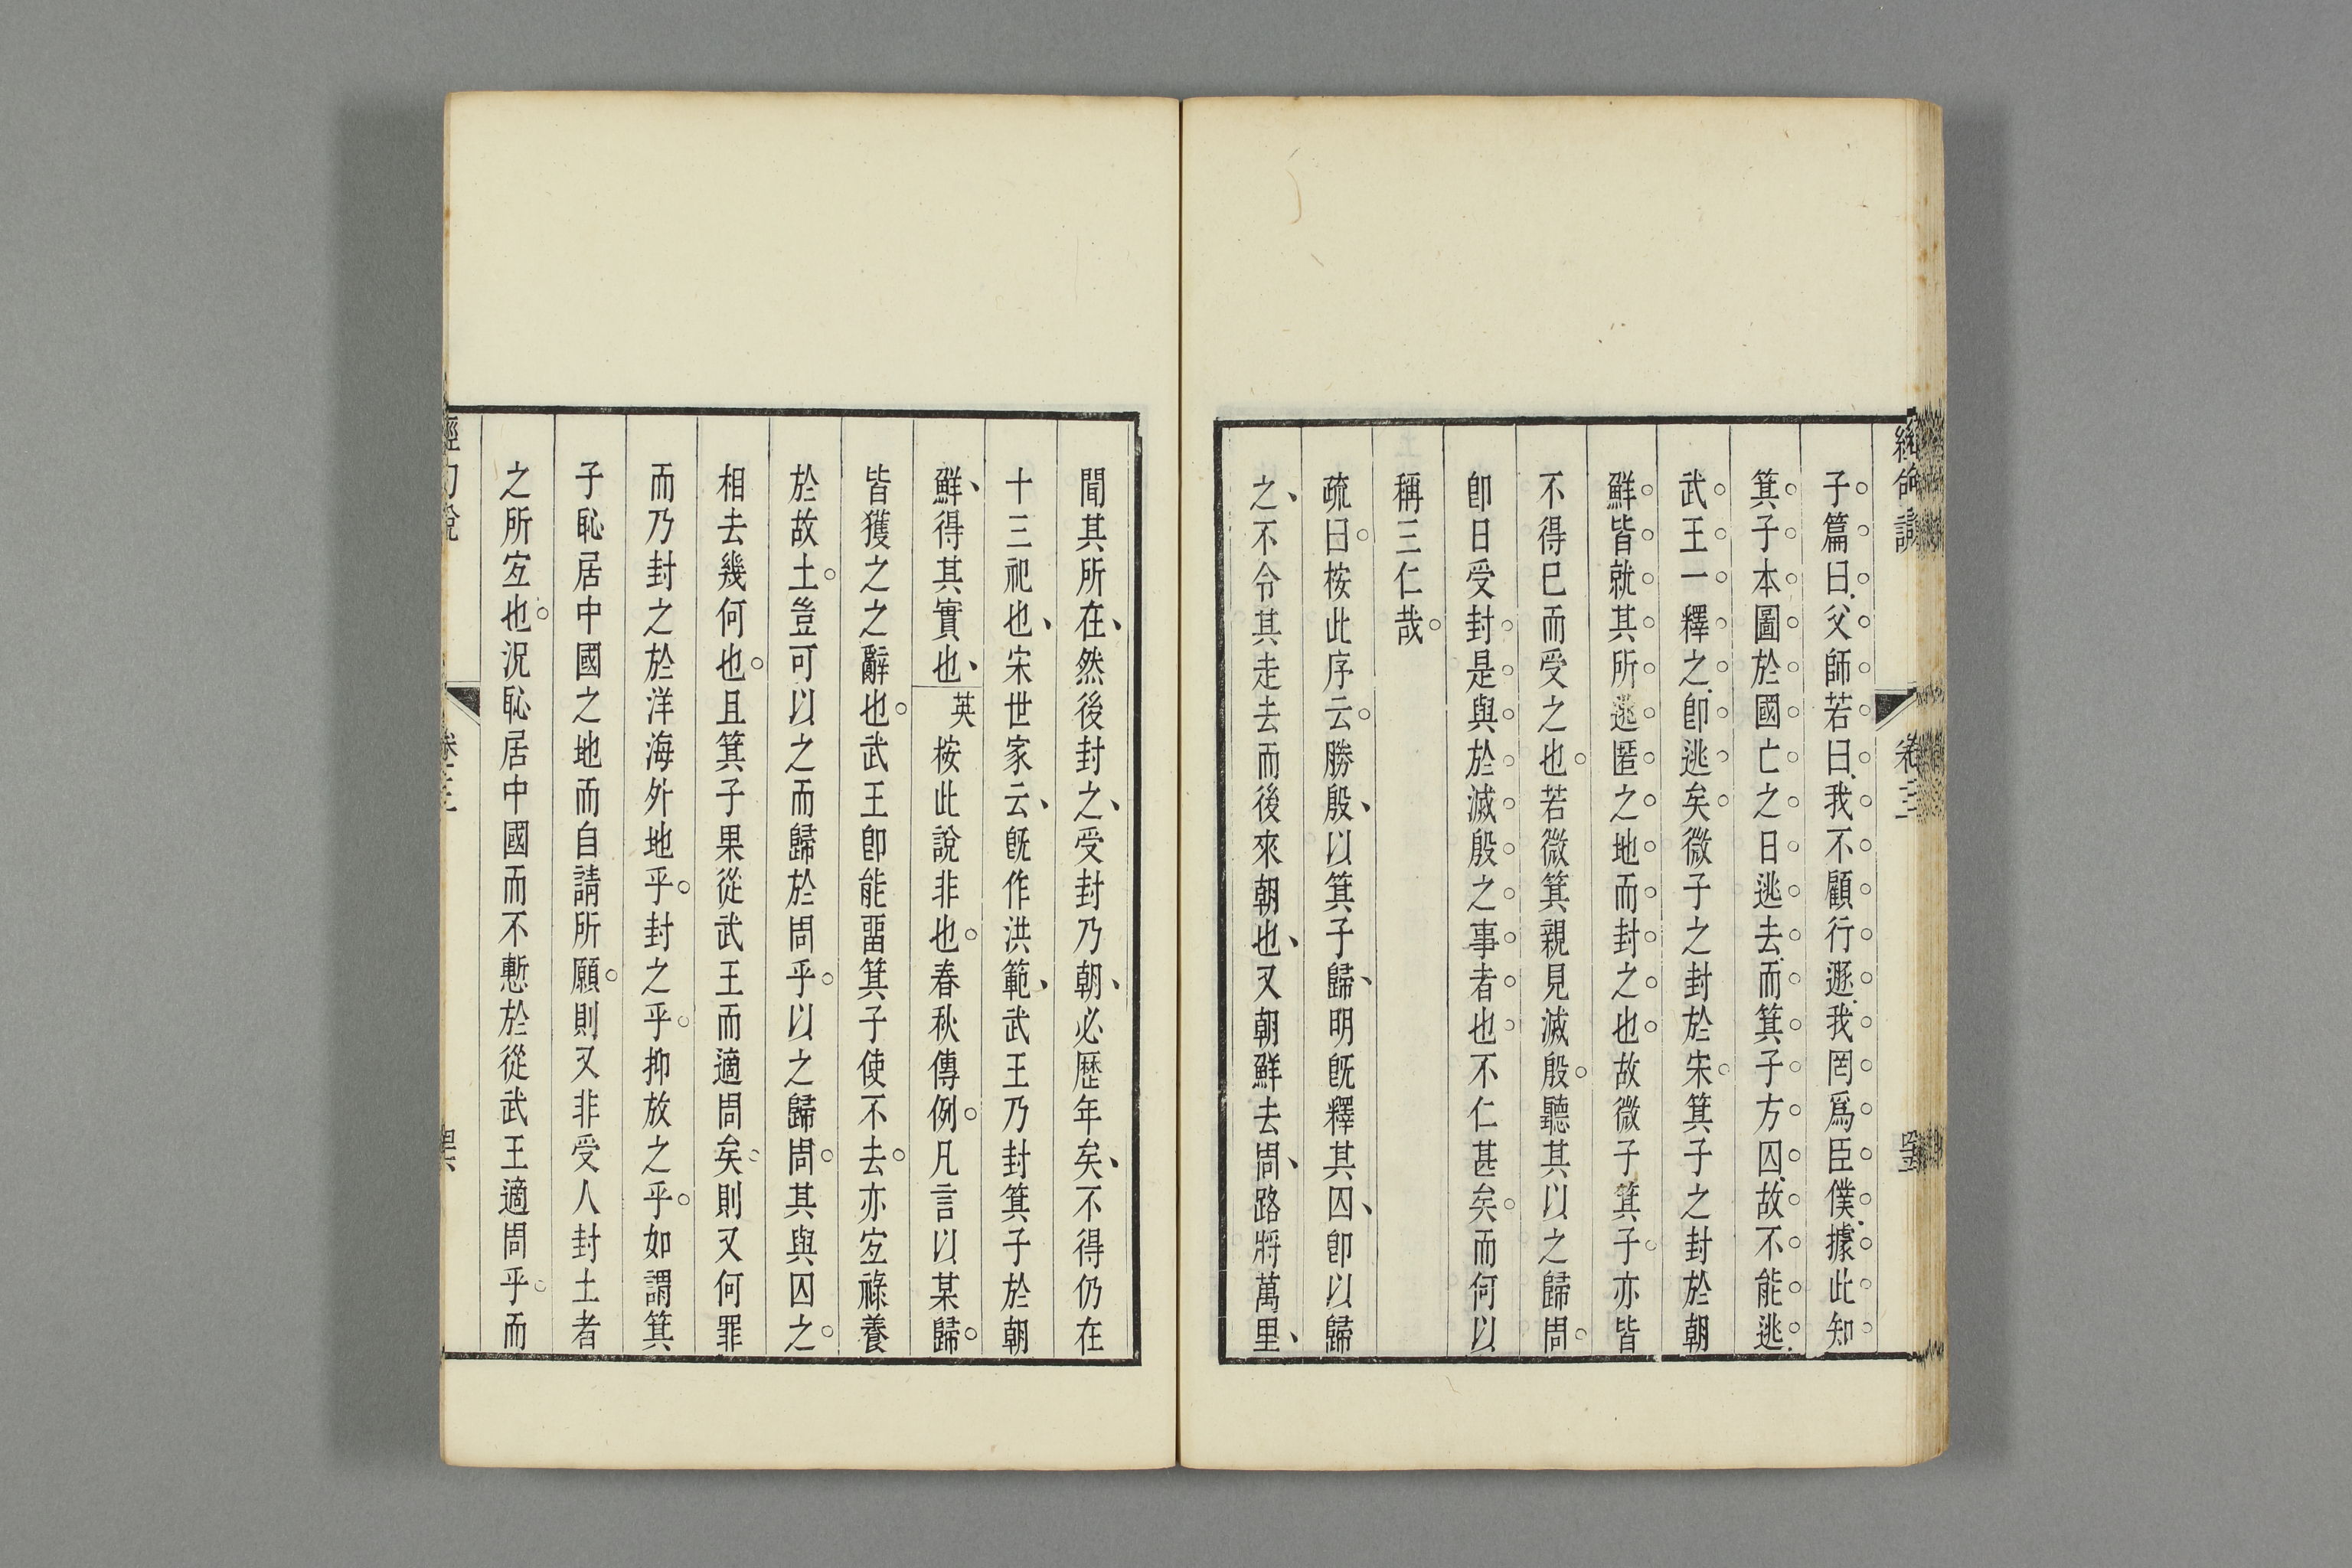 子篇曰父師若曰我不顧行遯我罔爲臣僕據此知
箕子本圖於國亡之日逃去而箕子方囚故不能逃
武王一釋之卽逃矣微子之封於宋箕子之封於朝
鮮皆就其所逃匿之地而封之也故微子箕子亦皆
不得已而受之也若微箕親見滅殷聽其以之歸周
卽日受封是與於滅殷之事者也不仁甚矣而何以
稱三仁哉
疏曰桉此序云勝殷以箕子歸明旣釋其囚卽以歸
之不令其走去而後來朝也又朝鮮去周路將萬里
聞其所在然後封之受封乃朝必歷年矣不得仍在
十三祀也宋世家云旣作洪範武王乃封箕子於朝
鮮得其實也英桉此說非也春秋傳例凡言以某歸
皆獲之之辭也武王卽能畱箕子使不去亦宐祿養
於故土豈可以之而歸於周乎以之歸周其與囚之
相去幾何也且箕子果從武王而適周矣則又何罪
而乃封之於洋海外地乎封之乎抑放之乎如謂箕
子恥居中國之地而自請所願則又非受人封土者
之所宐也況恥居中國而不慙於從武王適周乎而
卷三